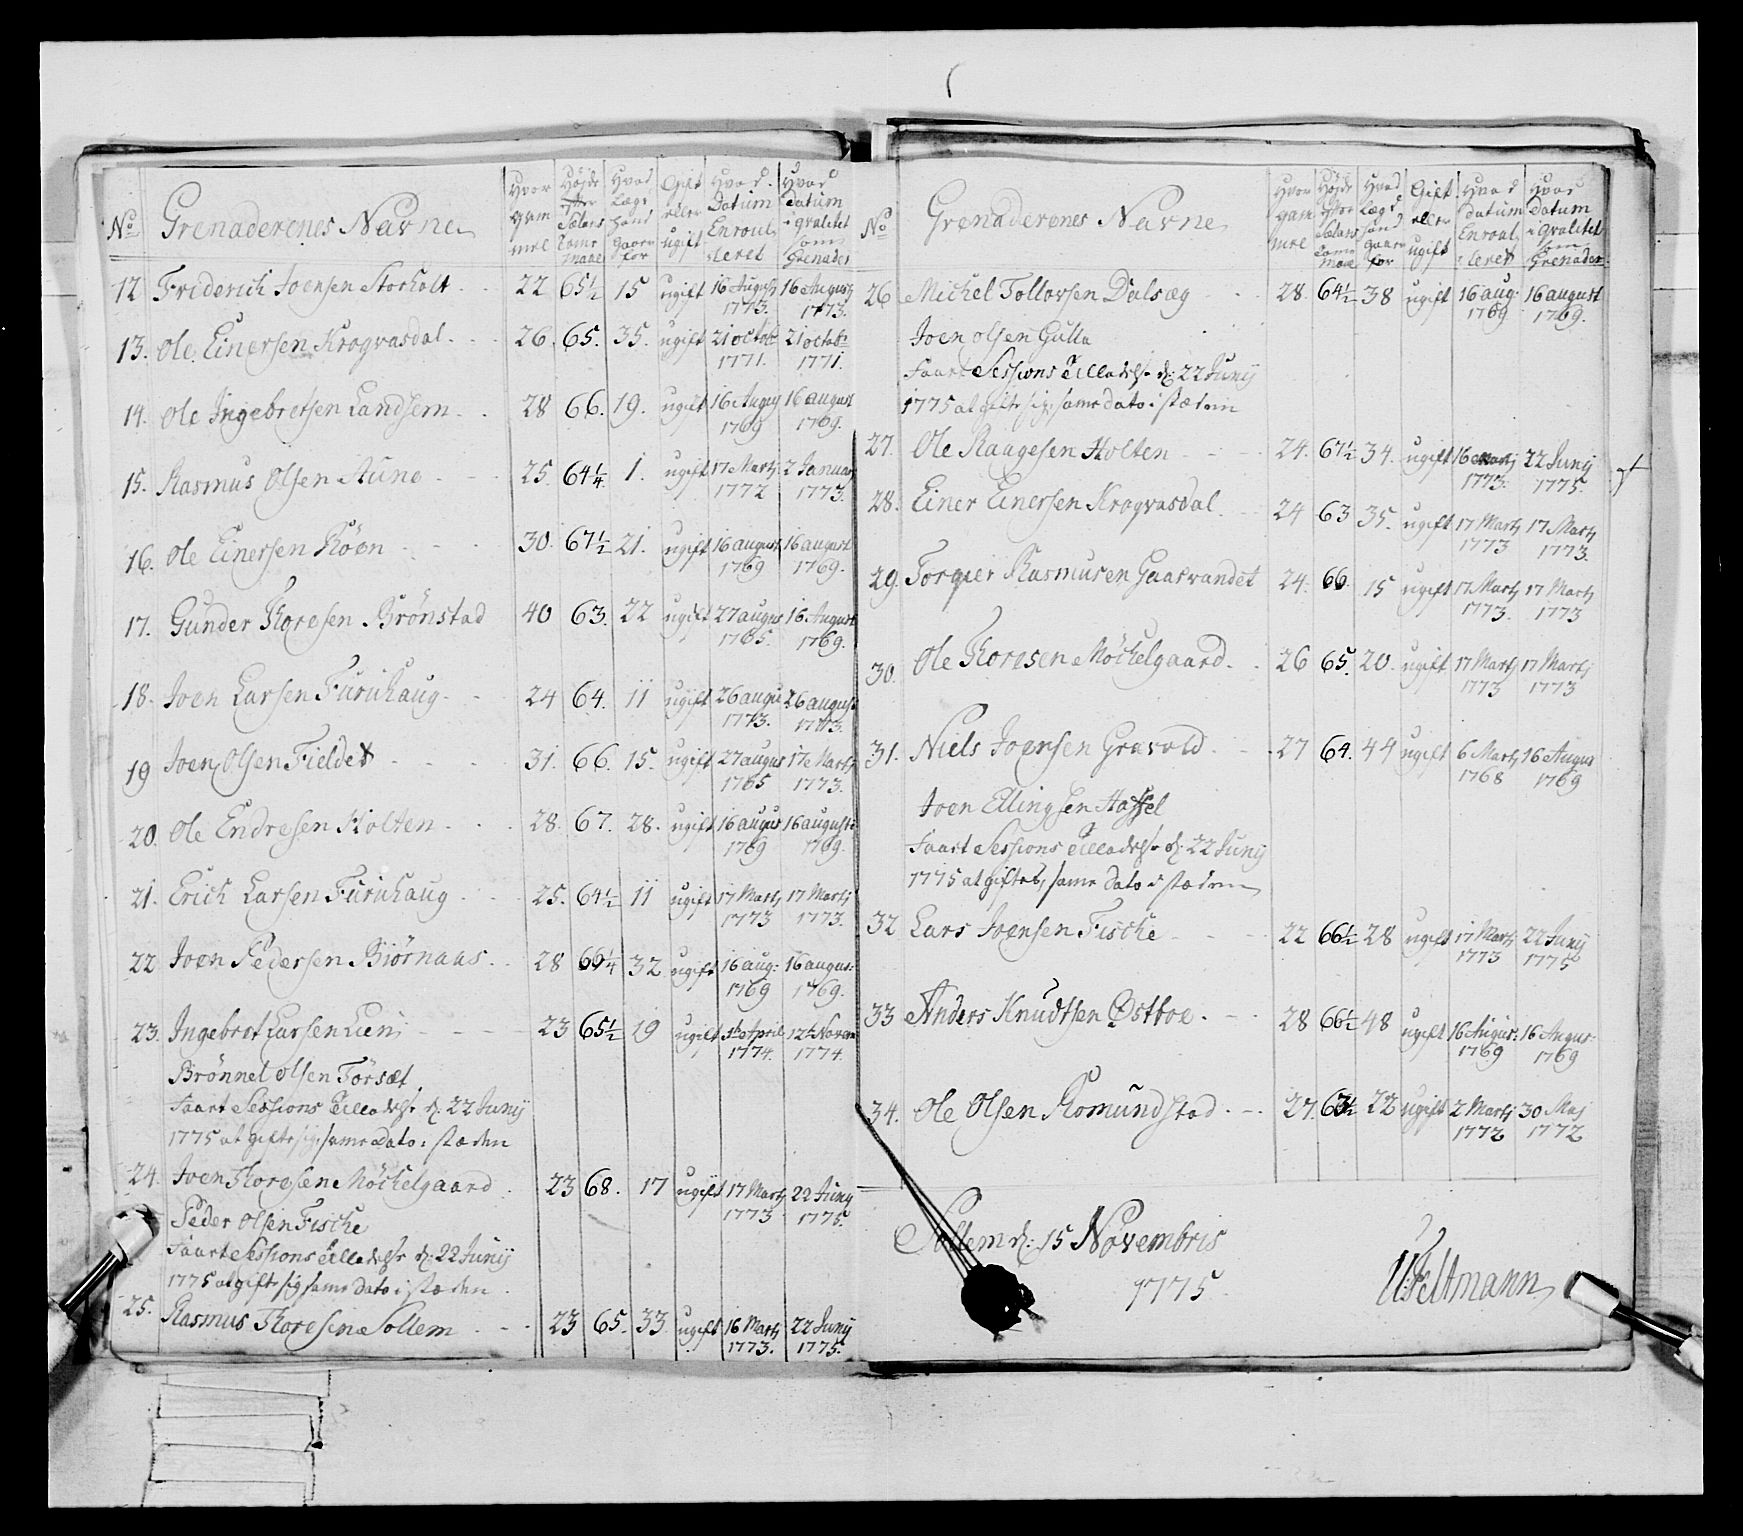 No Grenaderenes Navne Hvor gam mel Højde efter Siælans Tomme maal Hvad Lægs haand gaaer for Gift eller ugift Hvad Datum Enroul leret Hvad Datum i qvalitet som Grenader
12 Friderich Joensen Storholt 22 65½ 15 ugift 16 August 1773. 16 August 1773.
13. Ole Einersen Krogvasdal 26. 65. 35. ugift 21 octob: 1771. 21 octob: 1771.
14. Ole Ingebretsen Landsem 28 66. 19. ugift 16 August 1769 16 august 1769.
15. Rasmus Olsen Aune 25. 64¼ 1. ugift 17 Martj 1772 2 Januarj 1773.
16. Ole Einersen Röen 30. 67½ 21. ugift 16 august 1769 16 august 1769.
17. Gunder Thoresen Brönstad 40 63. 22 ugift 27 augus 1765. 16 August 1769.
18. Joen Larsen Furuhaug 24 64. 11 ugift 26 augu 1773. 26 augus: 1773.
19 Joen Olsen Fieldet 31. 66. 15. ugift 27 augus 1765 17 Martj 1773.
20. Ole Endresen Holten 28. 67. 28. ugift 16 augus 1769 16 august: 1769.
21. Erich Larsen Furuhaug 25. 64½ 11 ugift 17 Martj 1773 17 Martj 1773.
22 Joen Pedersen Biörnaas 28 69¼ 32 ugift 16 aug: 1769 16 augus: 1769.
23. Ingebret Larsen Lien 23 65½ 19 ugift April 1774. 12te Novem 1774.
Brönnel Olsen Forsæt
Faaet Sessions Tilladelse d: 22 Junij
1775 at gifte sig, same Dato i stæden
24. Joen Thoresen Möchelgaard 23 68. 17 ugift 17 Martj 1773 22 Junij 1775.
Peder Olsen Fische
Faaet Sessions Tilladelse d: 22 Junij
1775 at gifte sig same Dato i stæden
25. Rasmus Thoresen Sollem 23 65. 33. ugift 16 Martj 1773. 22 Junij 1775.
No Grenaderenes Navne Hvor gam mel Højde efter Siælans Tomme maal Hvad Lægs haand gaaer for Gift eller ugift Hvad Datum Enroul leret Hvad Datum i qvalitet som Grenader
26 Michel Tollovsen Dalsæg 28. 64½ 38 ugift 16 aug: 1769 16 august 1769.
Joen Olsen Gulla
Faaet Sessions Tilladelse d: 22 Junij
1775 at gifte sig, same dato i stæden
27. Ole Raagesen Holten 24. 67½ 34. ugift 16 Martj 1773. 22 Junij 1775.
28. Einer Einersen Krogvasdal 24 63 35. ugift 17 Martj 1773 17 Martj 1773.
29. Torger Rasmusen Gaasvandet 24. 66. 15 ugift 17 Martj 1773. 17 Martj 1773
30. Ole Thoresen Möchelgaard 26 65. 20. ugift 17 Martj 1773 17 Martj 1773
31. Niels Joensen Gravold 27 64. 44 ugift 6 Martj 1768 16 Augus 1769
Joen Ellingsen Hassel
Faaet Sessions Tilladelse d: 22 Junij
1775 at giftes, same Dato i stæden
32 Lars Joensen Fische 22 66½ 28 ugift 17 Martj 1773 22 Junij 1775
33 Anders Knudtsen Østboe 28 66½ 48 ugift 16 Augus: 1769 16 Augus: 1769
34. Ole Olsen Romundstad 27. 63½ 22 ugift 2 Martj 1772 30 Maj 1772
Sollem d: 15 Novembris
1775.
U:Feltmann